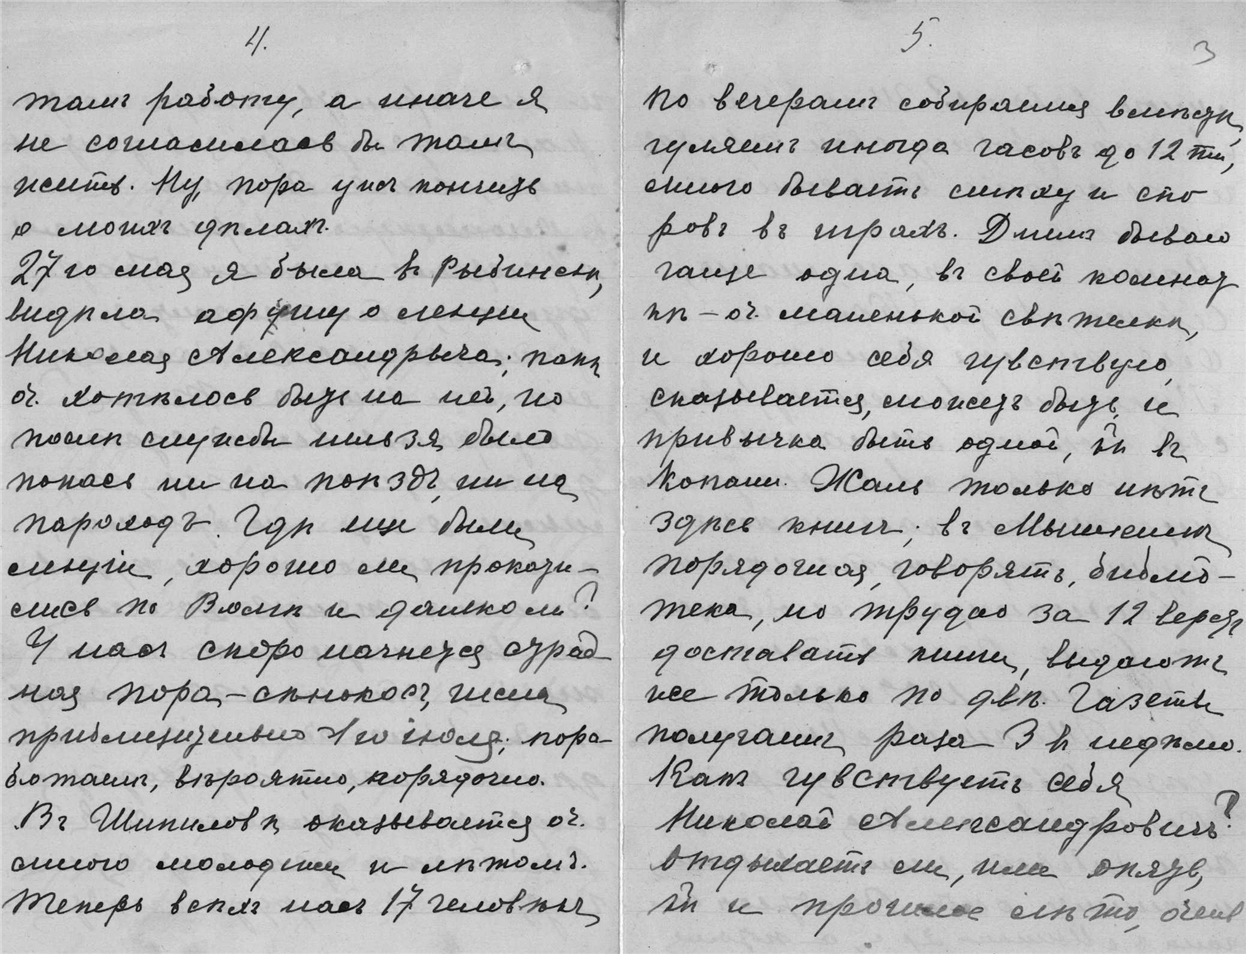 4.
тамъ работу, а иначе я
не согласилась бы тамъ
жить. Ну, пора ужъ кончить
о моихъ дѣлахъ.
27го мая я была въ Рыбинскѣ,
видѣла афишу о лекціи
Николая Александрыча; папѣ
оч. хотѣлось быть на ней, но
послѣ службы нельзя было
попасть ни на поѣздъ, ни на
пароходъ. Гдѣ еще были
лекціи, хорошо ли прокати-
лись по Волгѣ и далеко ли?
У насъ скоро начнется страд-
ная пора – сѣнокосъ, числа
приблизительно 1го іюля; пора-
ботаемъ, вѣроятно, порядочно.
Въ Шипиловѣ оказывается оч.
много молодежи и лѣтомъ.
Теперь всѣхъ насъ 17 человѣкъ,
5.
3
по вечерамъ собираемся вмѣстѣ,
гуляемъ иногда часовъ до 12ти,
много бываетъ смѣху и спо
ровъ въ играхъ. Днемъ бываю
чаще одна, въ своей комнат
кѣ – оч. маленькой свѣтелкѣ,
и хорошо себя чувствую,
сказывается, можетъ быть, и
привычка быть одной, к. въ
Копани. Жаль только нѣтъ
здѣсь книгъ; въ Мышкинѣ
порядочная, говорятъ, библіо-
тека, но трудно за 12 верстъ
доставать книги, выдаютъ
же только по двѣ. Газеты
получаемъ раза 3 в недѣлю.
Какъ чувствуетъ себя
Николай Александровичъ?
Отдыхаетъ ли, или опять,
к. и прошлое лѣто, очень